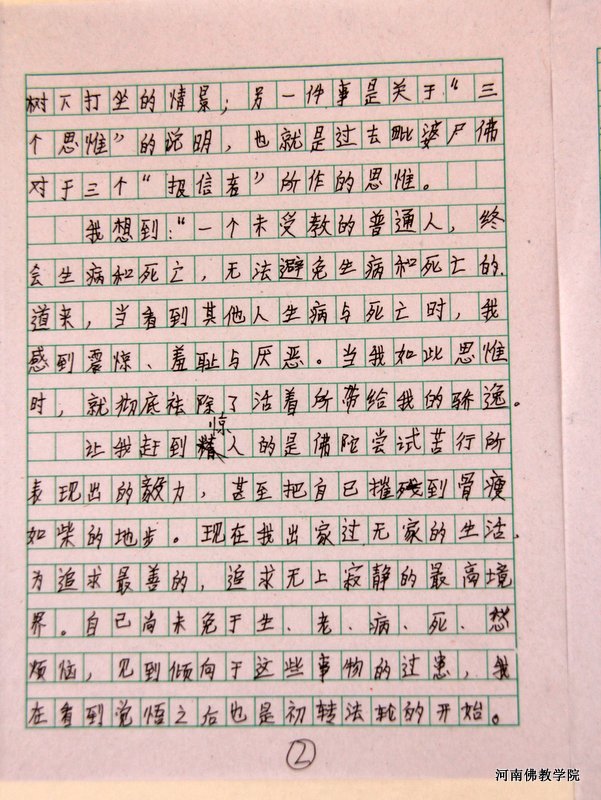 树下打坐的情景；另一件事是关于“三
个思惟”的说明，也就是过去毗婆尸佛
对于三个“报信者”所作的思惟。
我想到：“一个未受教的普通人，终
会生病和死亡，无法避免生病和死亡的
道来，当看到其他人生病与死亡时，我
感到震惊、羞耻与厌恶。当我如此思惟
时，就彻底祛除了活着所带给我的骄逸。
让我赶到惊人的是佛陀尝试苦行所
表现出的毅力，甚至把自己摧残到骨瘦
如柴的地步。现在我出家过无家的生活，
为追求最善的，追求无上寂静的最高境
界。自己尚未免于生、老、病、死、愁
烦恼，见到倾向于这些事物的过患，我
在看到觉悟之后也是初转法轮的开始。
②
河南佛教学院